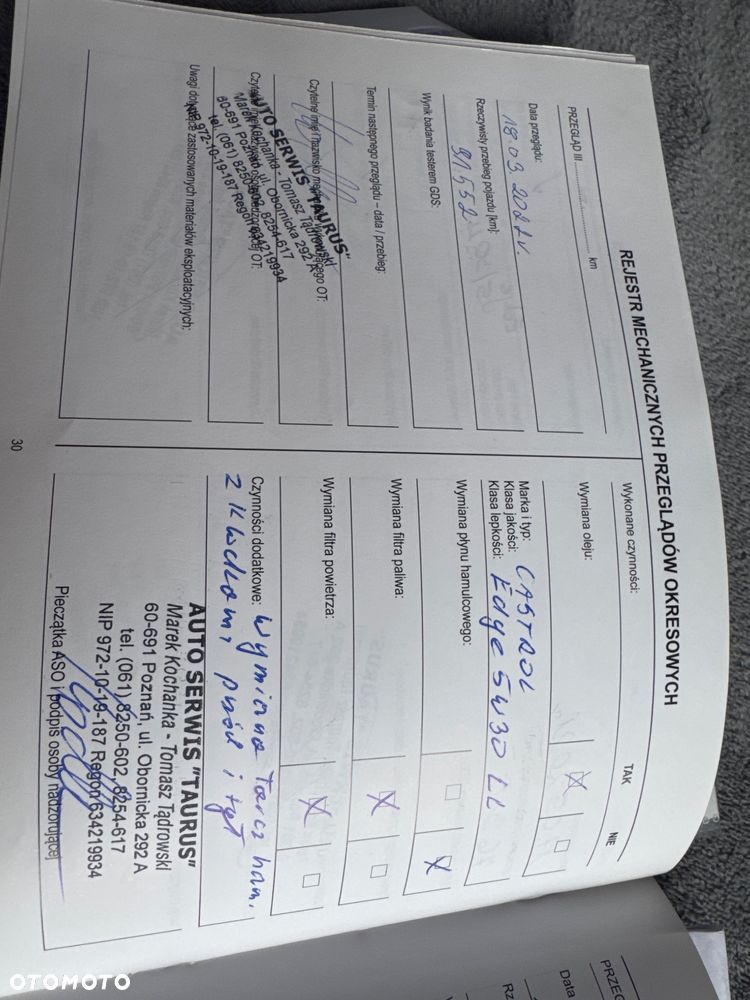 REJESTR MECHANICZNYCH PRZEGLĄDÓW OKRESOWYCH
PRZEGLĄD III .................................. km
Data przeglądu:
18.03.2022r.
Rzeczywisty przebieg pojazdu [km]:
91552
Wynik badania testerem GDS:
Termin następnego przeglądu – data / przebieg:
Czytelne imię i nazwisko
OT:
AUTO SERWIS "TAURUS"
Marek Kochanka - Tomasz Tądrowski
60-691 Poznań, ul. Obornicka 292 A
tel. (061) 8250-602, 8254-617
NIP 972-10-19-187 Regon 634219934
OT:
Uwagi dotyczące zastosowanych materiałów eksploatacyjnych:
Wykonane czynności: TAK NIE
Wymiana oleju:
Marka i typ: CASTROL
Klasa jakości:
Klasa lepkości: Edge 5W30 LL
Wymiana płynu hamulcowego:
Wymiana filtra paliwa:
Wymiana filtra powietrza:
Czynności dodatkowe: Wymiana tarcz ham.
z klockami przód i tył
AUTO SERWIS "TAURUS"
Marek Kochanka - Tomasz Tądrowski
60-691 Poznań, ul. Obornicka 292 A
tel. (061) 8250-602, 8254-617
NIP 972-10-19-187 Regon 634219934
Pieczątka ASO i podpis osoby nadzorującej
30
PRZE
Data
Rz
OTOMOTO